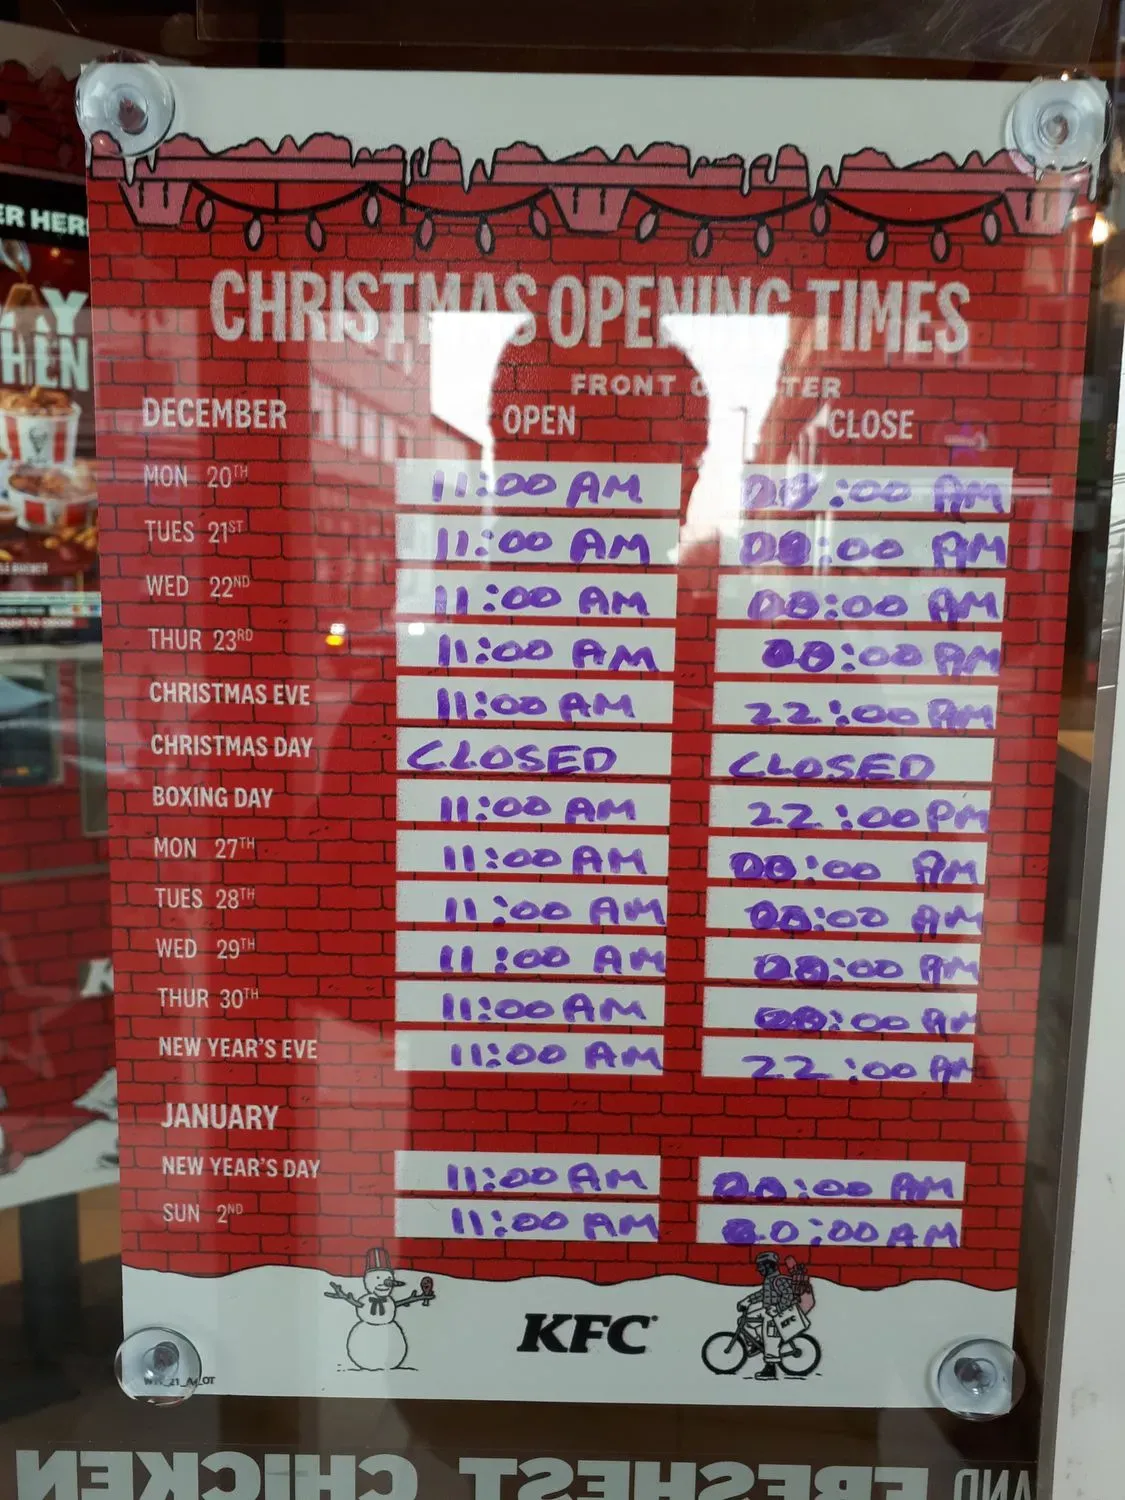 ER HER
AY
HEN
CHRISTMAS OPENING TIMES
FRONT COUNTER
DECEMBER OPEN CLOSE
MON 20TH 11:00 AM 00:00 AM
TUES 21ST 11:00 AM 00:00 AM
WED 22ND 11:00 AM 00:00 AM
THUR 23RD 11:00 AM 00:00 AM
CHRISTMAS EVE 11:00 AM 22:00 PM
CHRISTMAS DAY CLOSED CLOSED
BOXING DAY 11:00 AM 22:00 PM
MON 27TH 11:00 AM 00:00 AM
TUES 28TH 11:00 AM 00:00 AM
WED 29TH 11:00 AM 00:00 AM
THUR 30TH 11:00 AM 00:00 AM
NEW YEAR'S EVE 11:00 AM 22:00 PM
JANUARY
NEW YEAR'S DAY 11:00 AM 00:00 AM
SUN 2ND 11:00 AM 00:00 AM
KFC
AND FRESHEST CHICKEN